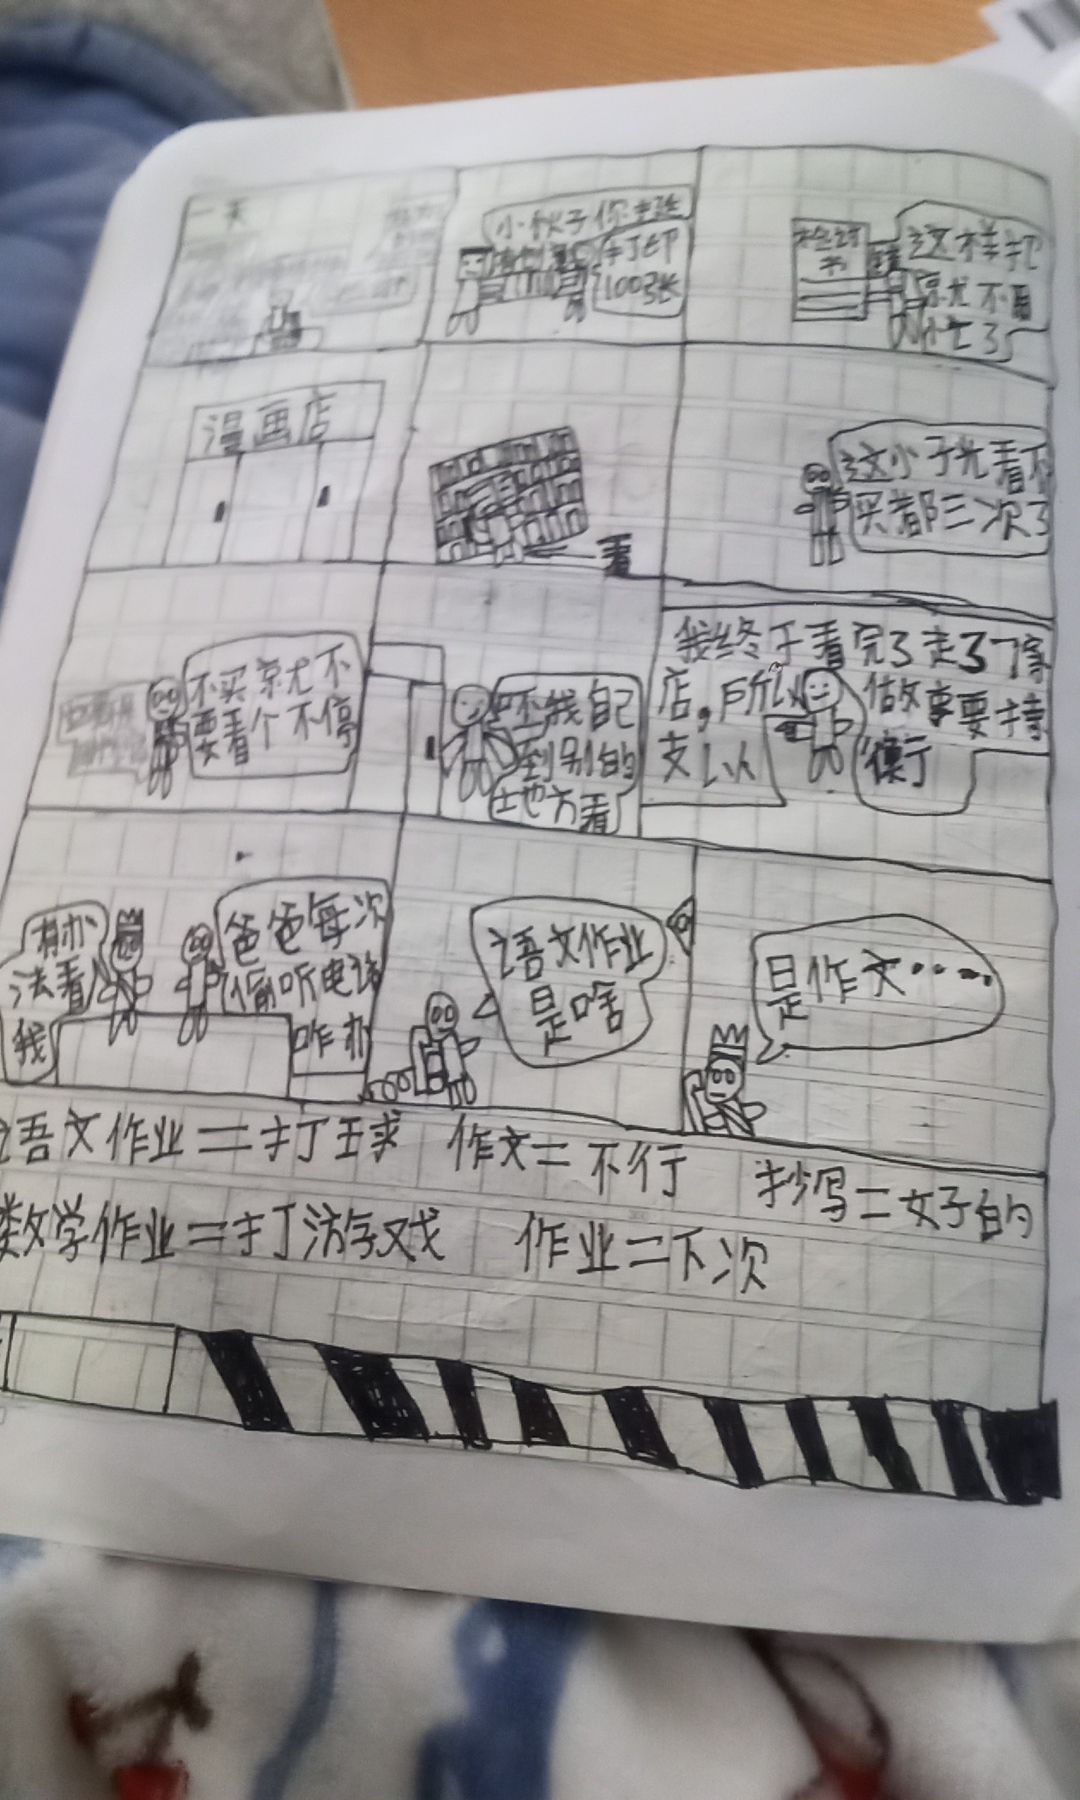 一天
小伙子你
打印
100张
检讨
书
这样
就不用
忙了
漫画店
看
这小子光看不
买都三次了
不买就不
要看个不停
呸我自己
到别的
地方看
我终于看完了走了
店。所以做事要持
支以
衡
有办
法看
我
爸爸每次
偷听电话
咋办
语文作业
是啥
是作文……
语文作业=打球 作文=不行 抄写=女子的
数学作业=打游戏 作业=下次